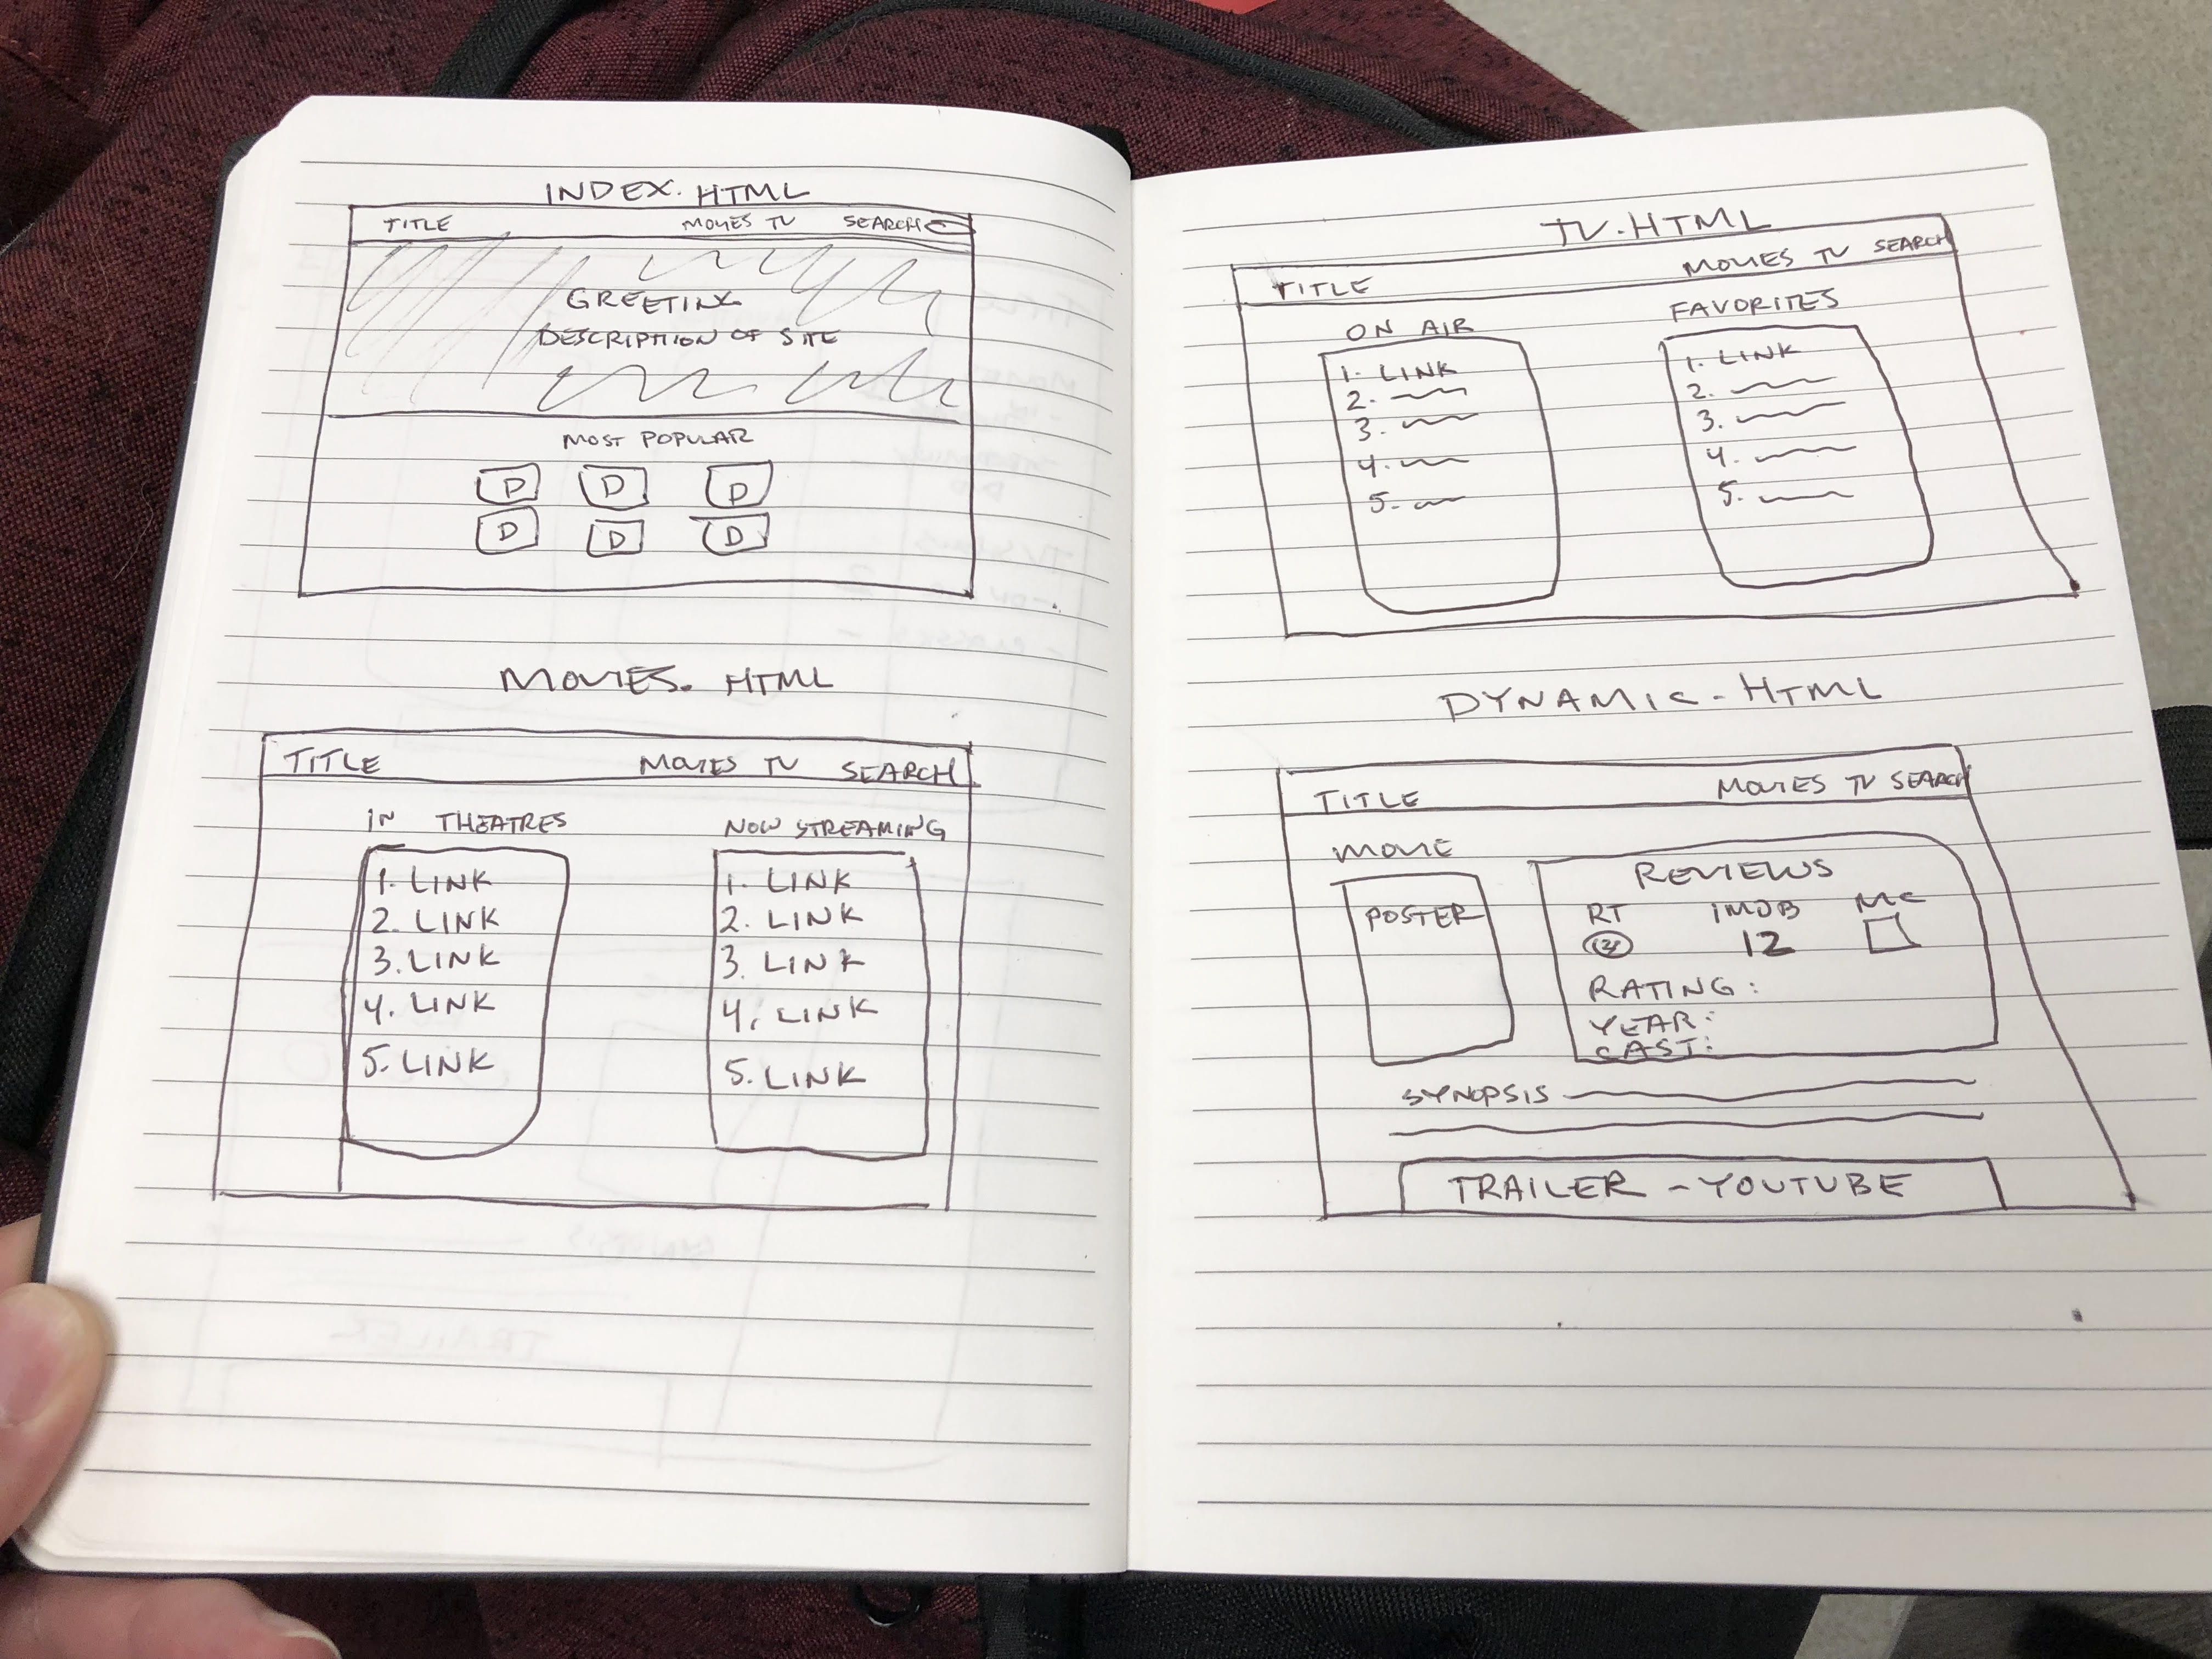 INDEX.HTML
TITLE MOVIES TV SEARCH
GREETING
DESCRIPTION OF SITE
MOST POPULAR
D D D
D D D
MOVIES.HTML
TITLE MOVIES TV SEARCH
IN THEATRES
1. LINK
2. LINK
3. LINK
4. LINK
5. LINK
NOW STREAMING
1. LINK
2. LINK
3. LINK
4. LINK
5. LINK
TV.HTML
TITLE MOVIES TV SEARCH
ON AIR
1. LINK
2.
3.
4.
5.
FAVORITES
1. LINK
2.
3.
4.
5.
DYNAMIC-HTML
TITLE MOVIES TV SEARCH
MOVIE
POSTER
REVIEWS
RT IMDB MC
12
RATING:
YEAR:
CAST:
SYNOPSIS
TRAILER - YOUTUBE